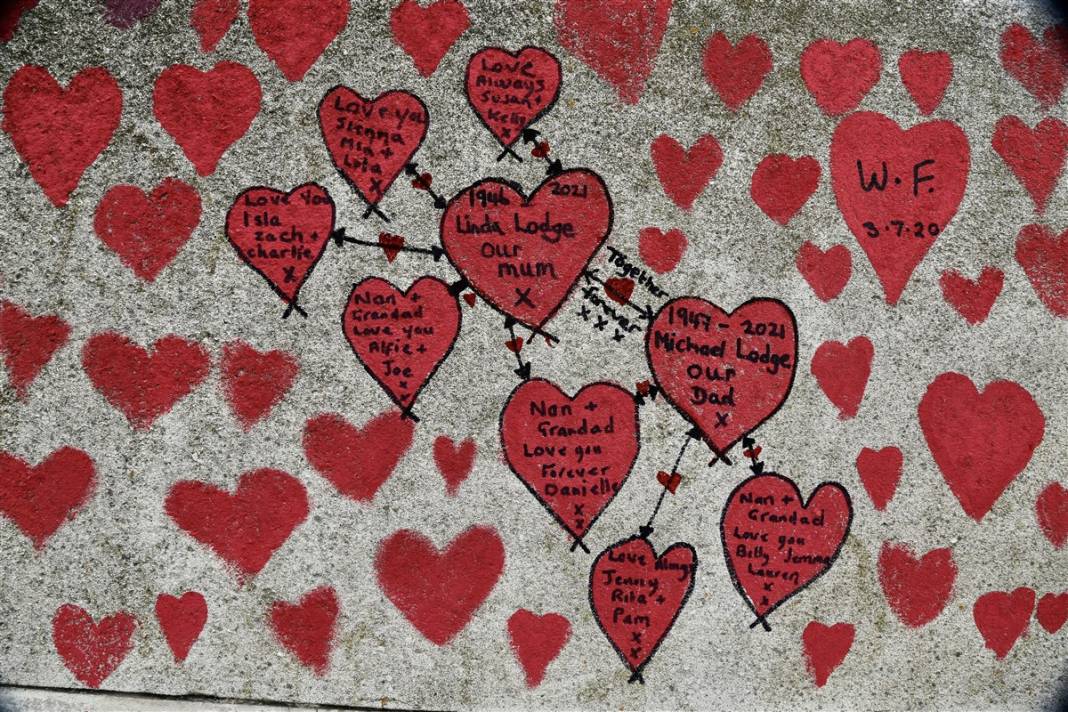 Love
Always
Susan +
Kelly
x
Love you
Sienna
Mia +
Lola
x
Love You
Isla
zach +
charlie
x
1946 2021
Linda Lodge
our
mum
x
Nan +
Grandad
Love you
Alfie +
Joe
x
Together
Forever
x x x x
1947 - 2021
Michael Lodge
our
Dad
x
Nan +
Grandad
Love you
Forever
Danielle
x
x
Love Always
Jenny
Rita +
Pam
x
x
Nan +
Grandad
Love you
Billy Jemma
Lauren
x
x
W.F.
3.7.20